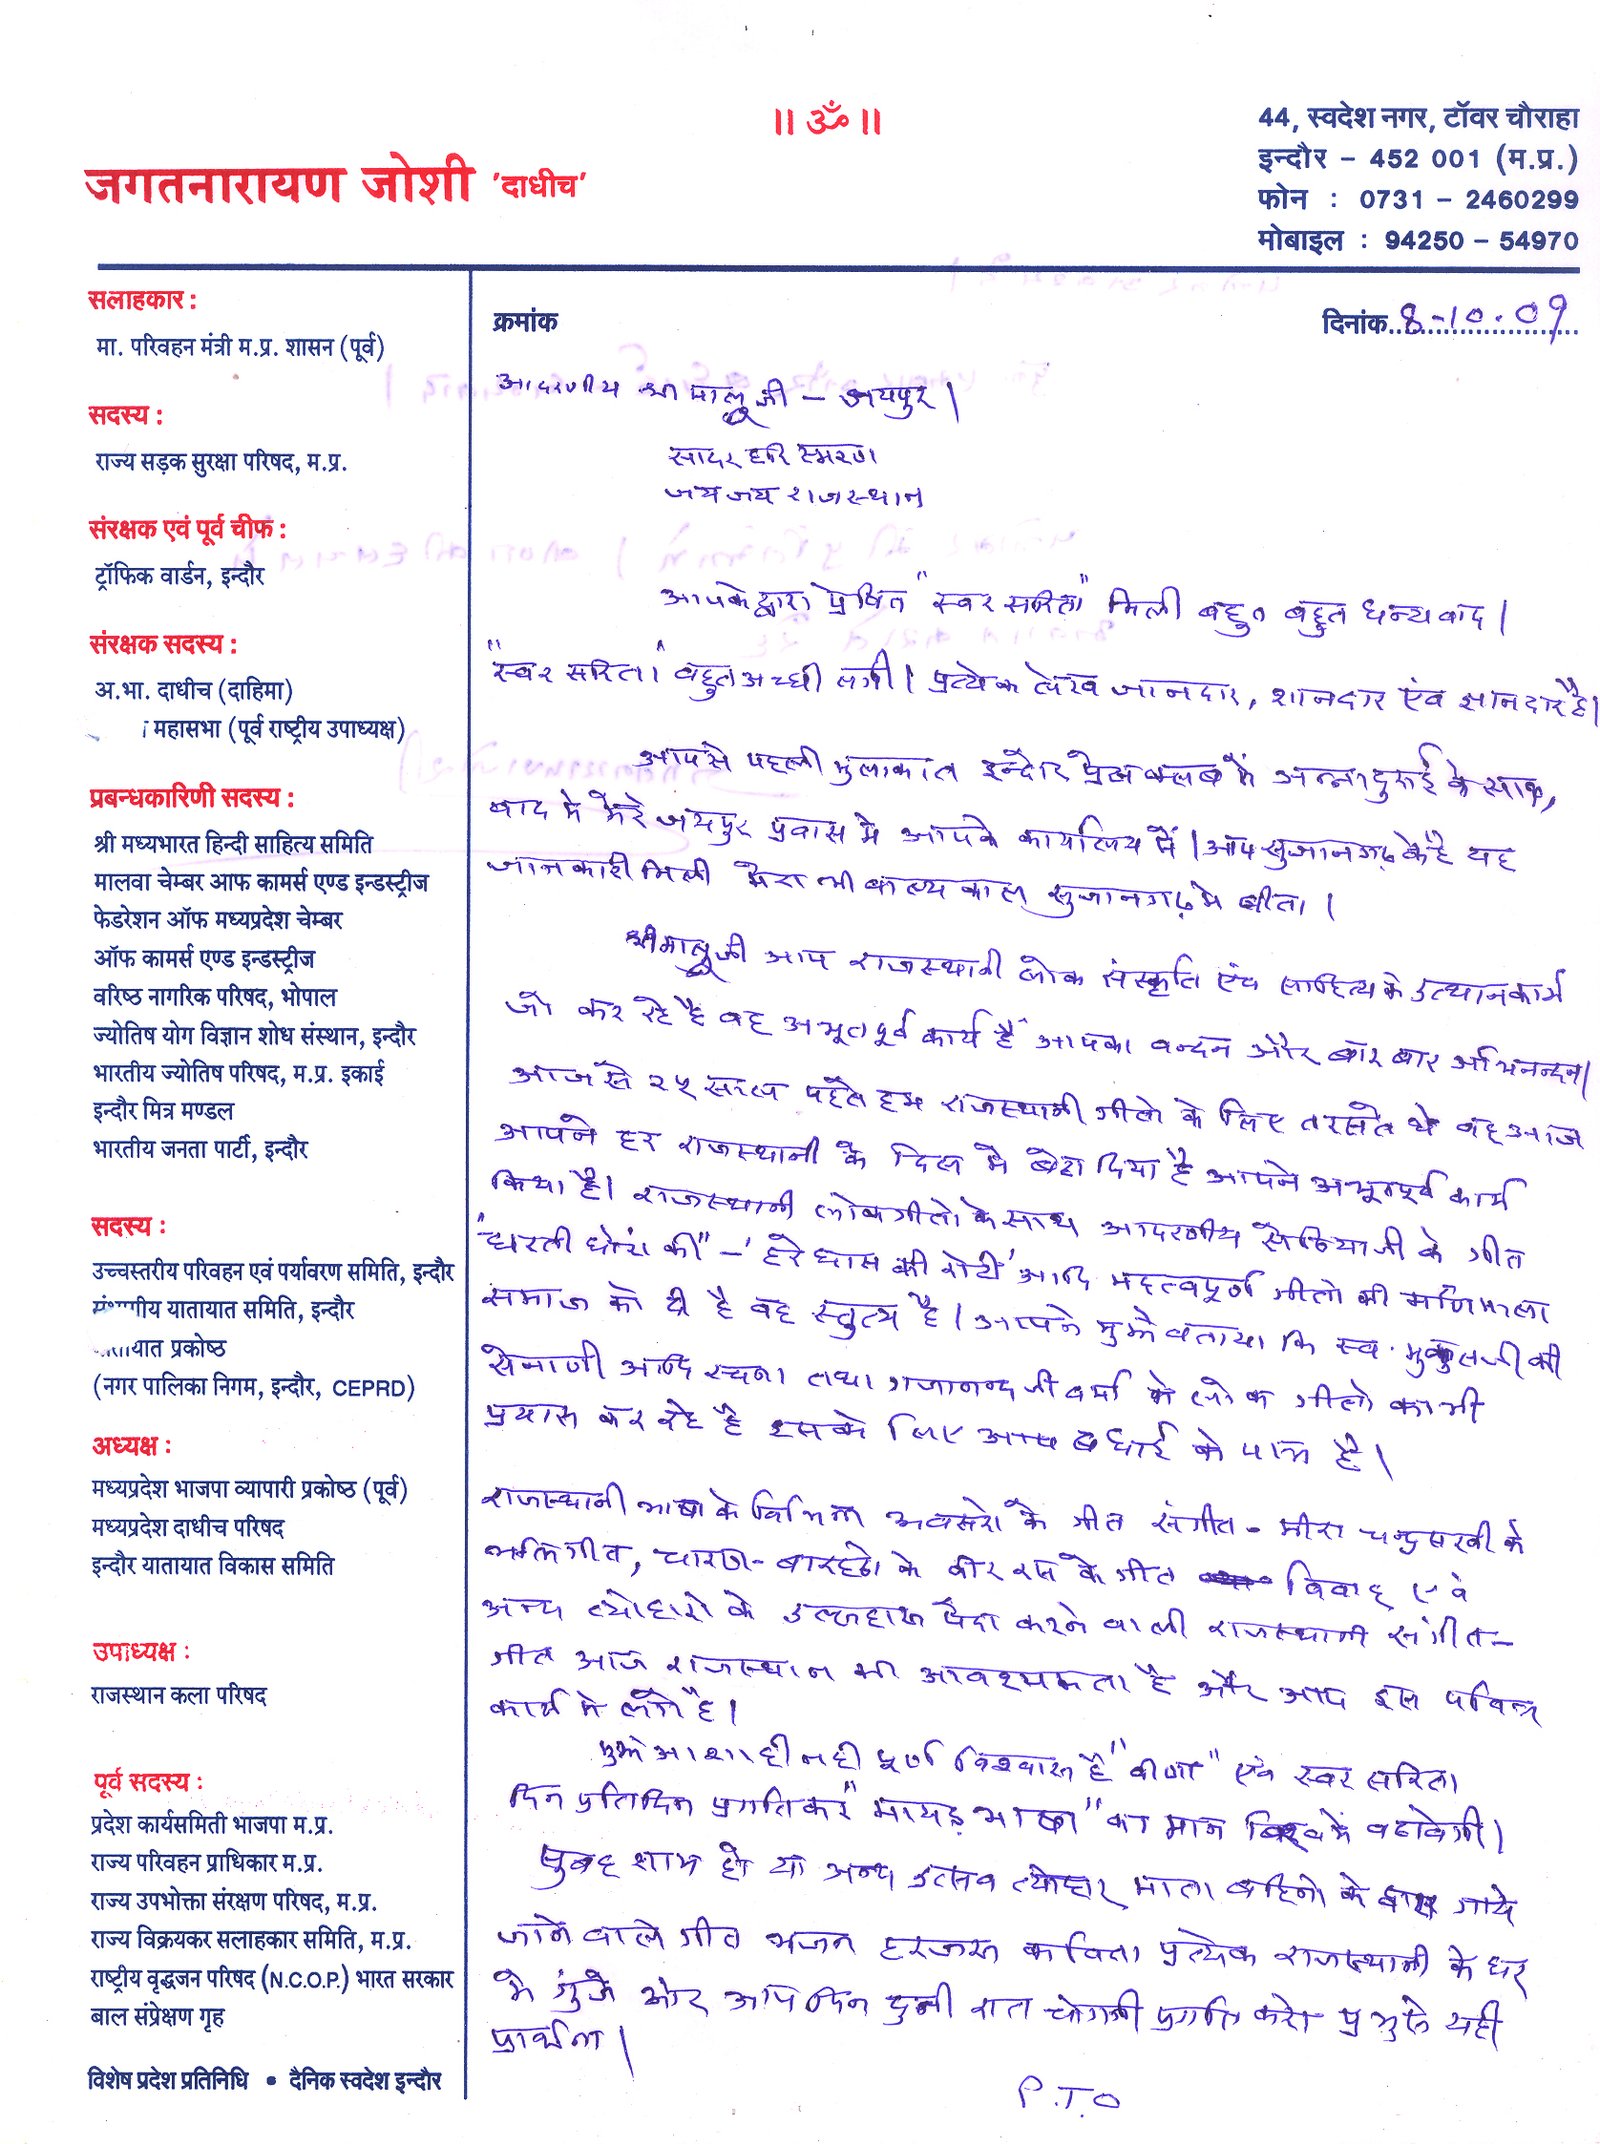 ॥ ॐ ॥
जगतनारायण जोशी 'दाधीच'
44, स्वदेश नगर, टॉवर चौराहा
इन्दौर – 452 001 (म.प्र.)
फोन : 0731 – 2460299
मोबाइल : 94250 – 54970
सलाहकार :
मा. परिवहन मंत्री म.प्र. शासन (पूर्व)
सदस्य :
राज्य सड़क सुरक्षा परिषद, म.प्र.
संरक्षक एवं पूर्व चीफ :
ट्रॉफिक वार्डन, इन्दौर
संरक्षक सदस्य :
अ.भा. दाधीच (दाहिमा)
महासभा (पूर्व राष्ट्रीय उपाध्यक्ष)
प्रबन्धकारिणी सदस्य :
श्री मध्यभारत हिन्दी साहित्य समिति
मालवा चेम्बर आफ कामर्स एण्ड इन्डस्ट्रीज
फेडरेशन ऑफ मध्यप्रदेश चेम्बर
ऑफ कामर्स एण्ड इन्डस्ट्रीज
वरिष्ठ नागरिक परिषद, भोपाल
ज्योतिष योग विज्ञान शोध संस्थान, इन्दौर
भारतीय ज्योतिष परिषद, म.प्र. इकाई
इन्दौर मित्र मण्डल
भारतीय जनता पार्टी, इन्दौर
सदस्य :
उच्चस्तरीय परिवहन एवं पर्यावरण समिति, इन्दौर
संभागीय यातायात समिति, इन्दौर
यातायात प्रकोष्ठ
(नगर पालिका निगम, इन्दौर, CEPRD)
अध्यक्ष :
मध्यप्रदेश भाजपा व्यापारी प्रकोष्ठ (पूर्व)
मध्यप्रदेश दाधीच परिषद
इन्दौर यातायात विकास समिति
उपाध्यक्ष :
राजस्थान कला परिषद
पूर्व सदस्य :
प्रदेश कार्यसमिती भाजपा म.प्र.
राज्य परिवहन प्राधिकार म.प्र.
राज्य उपभोक्ता संरक्षण परिषद, म.प्र.
राज्य विक्रयकर सलाहकार समिति, म.प्र.
राष्ट्रीय वृद्धजन परिषद (N.C.O.P.) भारत सरकार
बाल संप्रेक्षण गृह
विशेष प्रदेश प्रतिनिधि • दैनिक स्वदेश इन्दौर
क्रमांक
दिनांक 8-10-09
आदरणीय श्री मालू जी – जयपुर।
सादर हरि स्मरण
जय जय राजस्थान
आपके द्वारा प्रेषित "स्वर सरिता" मिली बहुत बहुत धन्यवाद।
"स्वर सरिता" बहुत अच्छी लगी। प्रत्येक लेख जानदार, शानदार एंव ज्ञानदार है।
आपसे पहली मुलाकात इन्दौर प्रेस क्लब में अन्नादुराई के साथ,
बाद मे मेरे जयपुर प्रवास मे आपके कार्यालय में। आप सुजानगढ़ के है यह
जानकारी मिली मेरा भी बाल्य काल सुजानगढ़ मे बीता।
श्री मालू जी आप राजस्थानी लोक संस्कृति एंव साहित्य के उत्थान कार्य
जो कर रहे है वह अभूतपूर्व कार्य है आपका वन्दन और बार बार अभिनन्दन।
आज से २५ साल पहले हम राजस्थानी गीतो के लिए तरसते थे वह आज
आपने हर राजस्थानी के दिल मे बेठा दिया है आपने अभूतपूर्व कार्य
किया है। राजस्थानी लोकगीतो के साथ आदरणीय सेठियाजी के गीत
"धरती धोरां की" – 'हरे घास की रोटी' आदि महत्वपूर्ण गीतो की मणिमाला
समाज को दी है वह स्तुत्य है। आपने मुझे बताया कि स्व. मुकुलजी की
सेनाणी आदि रचना तथा गजानन्द जी वर्मा के लोक गीतो का भी
प्रयास कर रहे है इसके लिए आप बधाई के पात्र है।
राजस्थानी भाषा के विभिन्न अवसरो के गीत संगीत - मीरा चन्द्रसखी के
भक्तिगीत, चारण - बारहठो के वीर रस के गीत विवाह एवं
अन्य त्योहारो के उल्लहास पैदा करने वाली राजस्थानी संगीत –
गीत आज राजस्थान की आवश्यकता है और आप इस पवित्र
कार्य मे लगे है।
मुझे आशा ही नही पूर्ण विश्वास है "वीणा" एंव स्वर सरिता
दिन प्रतिदिन प्रगति कर "मायड़ भाषा" का मान विश्व में बढावेगी।
सुबह शाम हो या अन्य उत्सव त्योहार माता बहिनो के द्वारा गाये
जाने वाले गीत भजन हरजस कविता प्रत्येक राजस्थानी के घर
मे गुंजे और आप दिन दुनी रात चोगनी प्रगति करो प्रभु से यही
प्रार्थना।
P.T.O